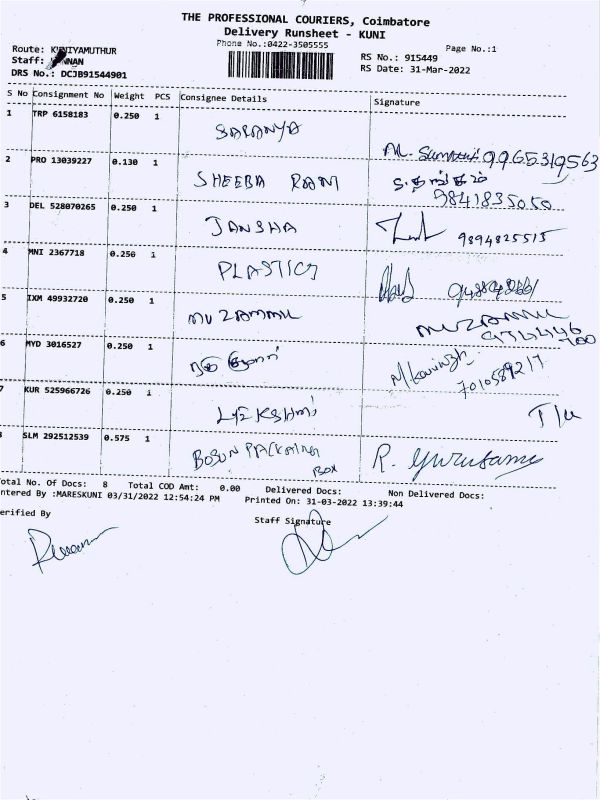 THE PROFESSIONAL COURIERS, Coimbatore
Delivery Runsheet - KUNI
Phone No.:0422-3505555
Page No.:1
Route: KUNIYAMUTHUR
Staff:
RS No.: 915449
DRS No.: DCJB91544901
RS Date: 31-Mar-2022
S No Consignment No Weight PCS Consignee Details Signature
1 TRP 6158183 0.250 1 SARANYA 9965319563
2 PRO 13039227 0.130 1 SHEEBA RANI 9841835050
3 DEL 528070265 0.250 1 JANSHA 9894825515
4 MNI 2367718 0.250 1 PLASTICS
5 IXM 49932720 0.250 1 MUZAMMIL MUZAMMIL
6 MYD 3016527 0.250 1 7010589217
7 KUR 525966726 0.250 1
8 SLM 292512539 0.575 1 BOSUN PACKAING BOX R. Gurusamy
Total No. Of Docs: 8 Total COD Amt: 0.00 Delivered Docs: Non Delivered Docs:
ntered By :MARESKUNI 03/31/2022 12:54:24 PM Printed On: 31-03-2022 13:39:44
erified By
Staff Signature